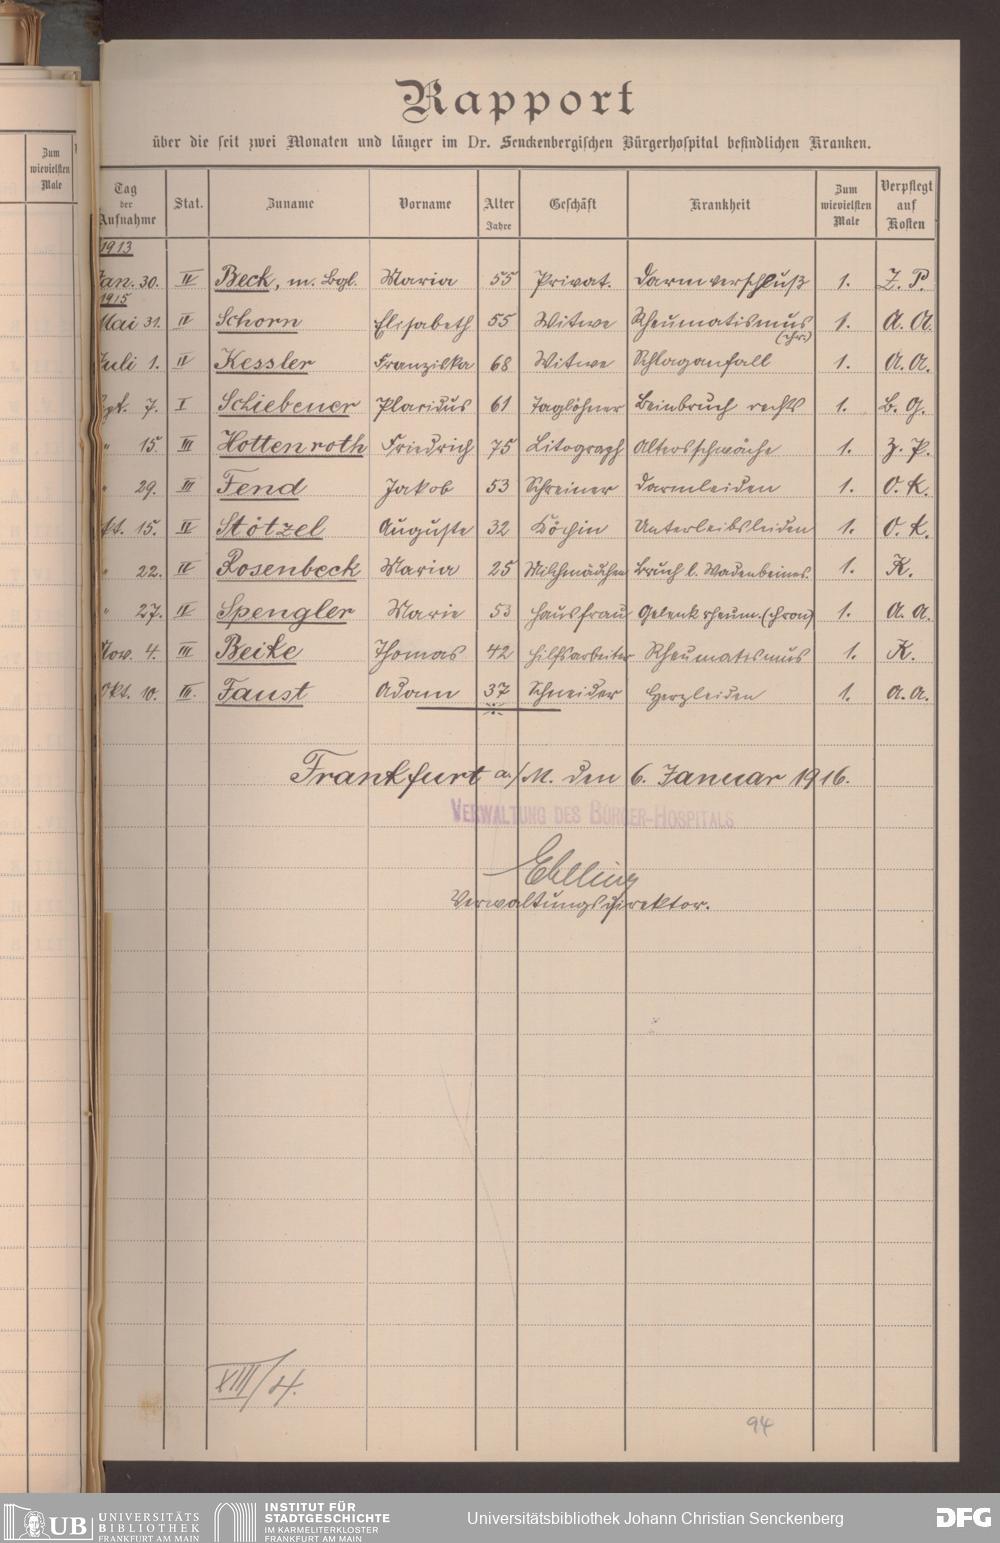 Zum
wievielsten
Male
Rapport
über die seit zwei Monaten und länger im Dr. Senckenbergischen Bürgerhospital befindlichen Kranken.
Tag der Aufnahme Stat. Zuname Vorname Alter Jahre Geschäft Krankheit Zum wievielsten Male Verpflegt auf Kosten
1913
Jan. 30. IV Beck, m. Bgl. Maria 55 Privat. Darmverschluß 1. Z. P.
1915
Mai 31. IV Schorn Elisabeth 55 Witwe Rheumatismus (chr.) 1. A. A.
Juli 1. IV Kessler Franziska 68 Witwe Schlaganfall 1. A. A.
Spt. 7. I Schiebener Placidus 61 Taglöhner Beinbruch rechts 1. B. G.
" 15. III Hottenroth Friedrich 75 Litograph Altersschwäche 1. Z. P.
" 29. III Fend Jakob 53 Schreiner Darmleiden 1. O. K.
kt. 15. IV Stötzel Auguste 32 Köchin Unterleibsleiden 1. O. K.
" 22. IV Rosenbeck Maria 25 Milchmädchen Bruch l. Wadenbeines. 1. K.
" 27. IV Spengler Marie 53 Hausfrau Gelenkrheum. (chron) 1. A. A.
Nov. 4. III Beike Thomas 42 Hilfsarbeiter Rheumatismus 1. K.
Okt. 10. III. Faust Adam 37 Schneider Herzleiden 1. A. A.
Frankfurt a/M. den 6. Januar 1916.
VERWALTUNG DES BÜRGER-HOSPITALS
Ebeling
Verwaltungsdirektor.
XIII/4.
94
UB UNIVERSITÄTS BIBLIOTHEK FRANKFURT AM MAIN
INSTITUT FÜR STADTGESCHICHTE IM KARMELITERKLOSTER FRANKFURT AM MAIN
Universitätsbibliothek Johann Christian Senckenberg
DFG